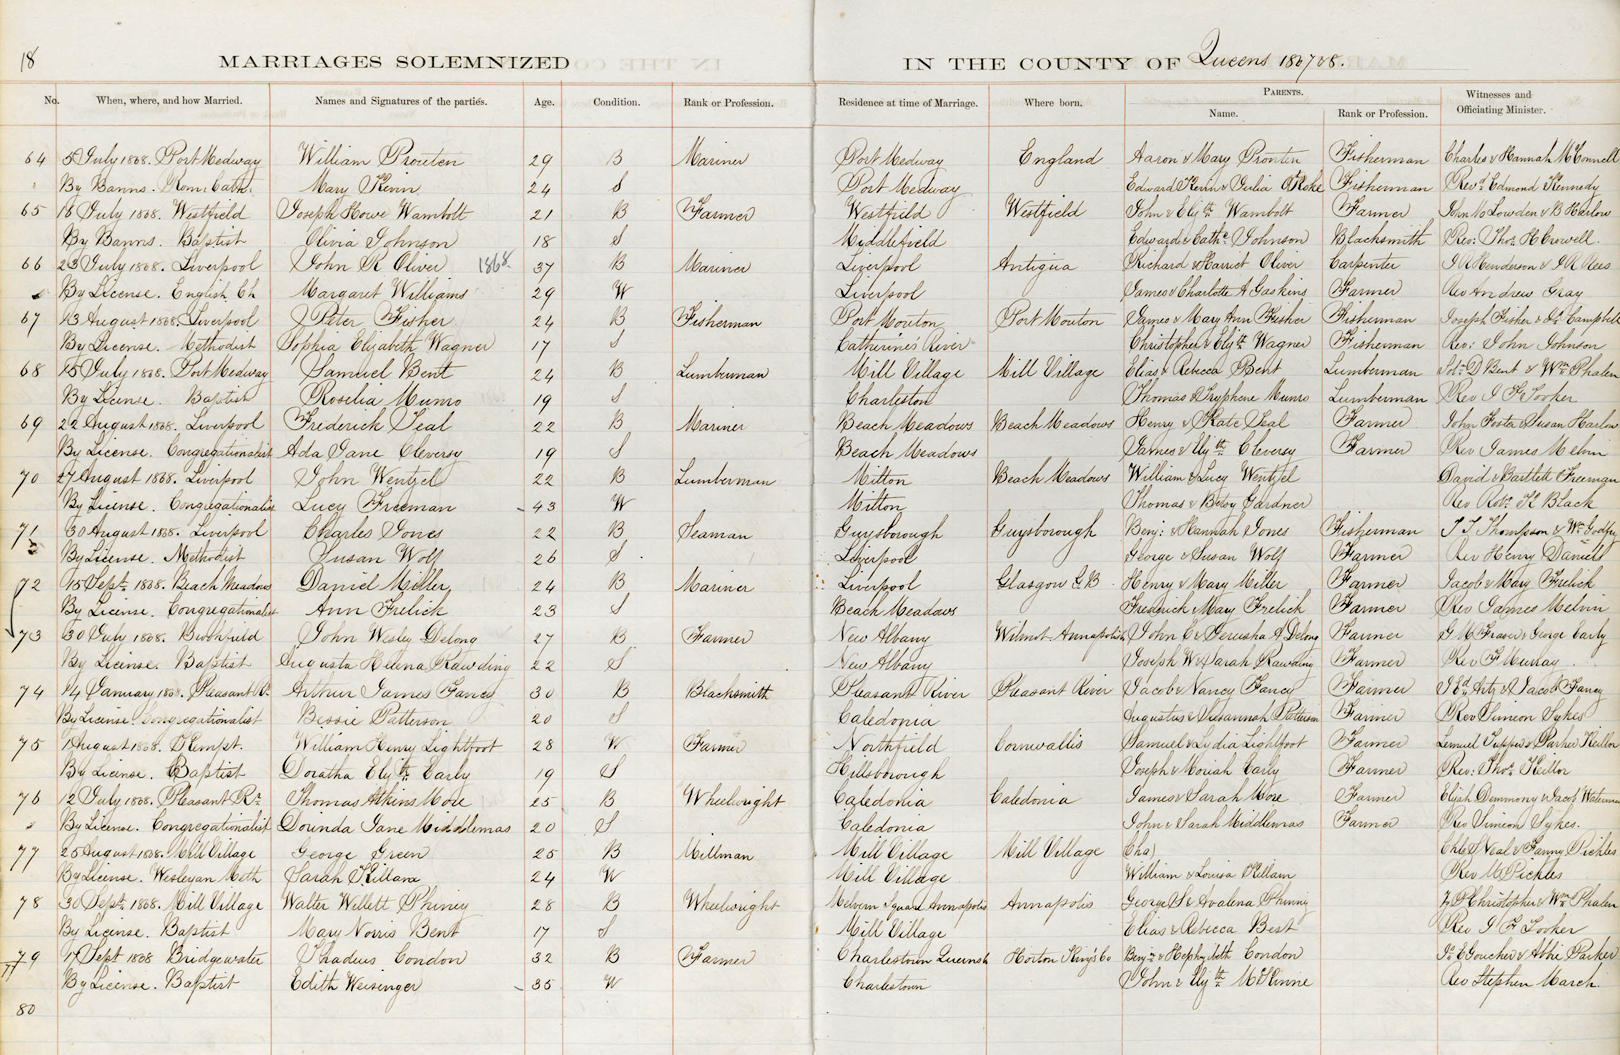 18 MARRIAGES SOLEMNIZED IN THE COUNTY OF Queens 1867 & 8.
No. When, where, and how Married. Names and Signatures of the parties. Age. Condition. Rank or Profession. Residence at time of Marriage. Where born. PARENTS. Name. Rank or Profession. Witnesses and Officiating Minister.
64 5 July 1868. Port Medway William Prouten 29 B Mariner Port Medway England Aaron & Mary Prouten Fisherman Charles & Hannah McConnell
By Banns. Rom: Cath: Mary Kevin 24 S Port Medway Edward Kevin & Julia Fisherman Revd Edmond Kennedy
65 18 July 1868. Westfield Joseph Howe Wambolt 21 B Farmer Westfield Westfield John & Elizth Wambolt Farmer John McLowden & B Harlow
By Banns. Baptist Olivia Johnson 18 S Middlefield Edward & Cathe Johnson Blacksmith Rev: Thos H Crowell.
66 23 July 1868. Liverpool John R Oliver 1868. 37 B Mariner Liverpool Antigua Richard & Harriet Oliver Carpenter J R Henderson & J R Rees
By License. English Ch Margaret Williams 29 W Liverpool James & Charlotte A Gaskins Farmer Rev Andrew Gray
67 13 August 1868. Liverpool Peter Fisher 24 B Fisherman Port Mouton Port Mouton James & Mary Ann Fisher Fisherman Joseph Fisher & Campbell
By License. Methodist Sophia Elizabeth Wagner 17 S Catherine's River Christopher & Elizth Wagner Fisherman Rev: John Johnson
68 15 July 1868. Port Medway Samuel Bent 24 B Lumberman Mill Village Mill Village Elias & Rebecca Bent Lumberman Bent & Wm Phalen
By License. Baptist Rosilia Munro 19 S Charleston Thomas & Tryphene Munro Lumberman Rev I F Tooker
69 22 August 1868. Liverpool Frederick Teal 22 B Mariner Beach Meadows Beach Meadows Henry & Kate Teal Farmer John Foster & Susan Harlow
By License. Congregationalist Ada Jane Cleversy 19 S Beach Meadows James & Elizth Cleversy Farmer Rev James Melvin
70 27 August 1868. Liverpool John Wentzel 22 B Lumberman Milton Beach Meadows William & Lucy Wentzel David & Bartlett Freeman
By License. Congregationalist Lucy Freeman 43 W Milton Thomas & Betsy Gardner Rev Robt K Black
71 30 August 1868. Liverpool Charles Jones 22 B Seaman Guysborough Guysborough Benj: & Hannah Jones Fisherman T J Thompson & Wm Godfrey
By License. Methodist Susan Wolf 26 S Liverpool George & Susan Wolf Farmer Rev Henry Daniell
72 15 Sept. 1868. Beach Meadows Daniel Miller 24 B Mariner Liverpool Glasgow G.B. Henry & Mary Miller Farmer Jacob & Mary Frelick
By License. Congregationalist Ann Frelick 23 S Beach Meadows Frederick & Mary Frelick Farmer Rev James Melvin
73 30 July 1868. Brookfield John Wesley Delong 27 B Farmer New Albany Wilmot Annapolis John C & Jerusha A Delong Farmer G M Fraser & George Early
By License. Baptist Augusta Helena Rawding 22 S New Albany Joseph W & Sarah Rawding Farmer Rev F Murray
74 14 January 1868. Pleasant R. Arthur James Fancy 30 B Blacksmith Pleasant River Pleasant River Jacob & Nancy Fancy Farmer & Jacob Fancy
By License. Congregationalist Bessie Patterson 20 S Caledonia Augustus & Susannah Patterson Farmer Rev Simeon Sykes
75 1 August 1868. Kempt. William Henry Lightfoot 28 W Farmer Northfield Cornwallis Samuel & Lydia Lightfoot Farmer Lemuel Tupper & Parker Keillor
By License. Baptist Doratha Elizth Early 19 S Hillsborough Joseph & Moriah Early Farmer Rev: Thos Keillor
76 12 July 1868. Pleasant Rr. Thomas Atkins More 25 B Wheelwright Caledonia Caledonia James & Sarah More Farmer Elijah Demmony & Jacob Waterman
By License. Congregationalist Dorinda Jane Middlemas 20 S Caledonia John & Sarah Middlemas Farmer Rev Simeon Sykes.
77 25 August 1868. Mill Village George Green 25 B Millman Mill Village Mill Village Cha) Chls Neal & Fanny Pickles
By License. Wesleyan Meth Sarah Killam 24 W Mill Village William & Louisa Killam Rev M Pickles
78 30 Sept. 1868. Mill Village Walter Willett Phiney 28 B Wheelwright Melvern Square Annapolis Annapolis George S & Avalena Phinny Christopher & Wm Phalen
By License. Baptist Mary Norris Bent 17 S Mill Village Elias & Rebecca Bent Rev I F Tooker
79 17 Sept 1868 Bridgewater Thadeus Condon 32 B Farmer Charlestown Queens Horton King's Co Benjn & Hephzibeth Condon E Goucher & Abbie Parker
By License. Baptist Edith Weisinger 35 W Charlestown John & Elizth McKinne Rev Stephen March.
80